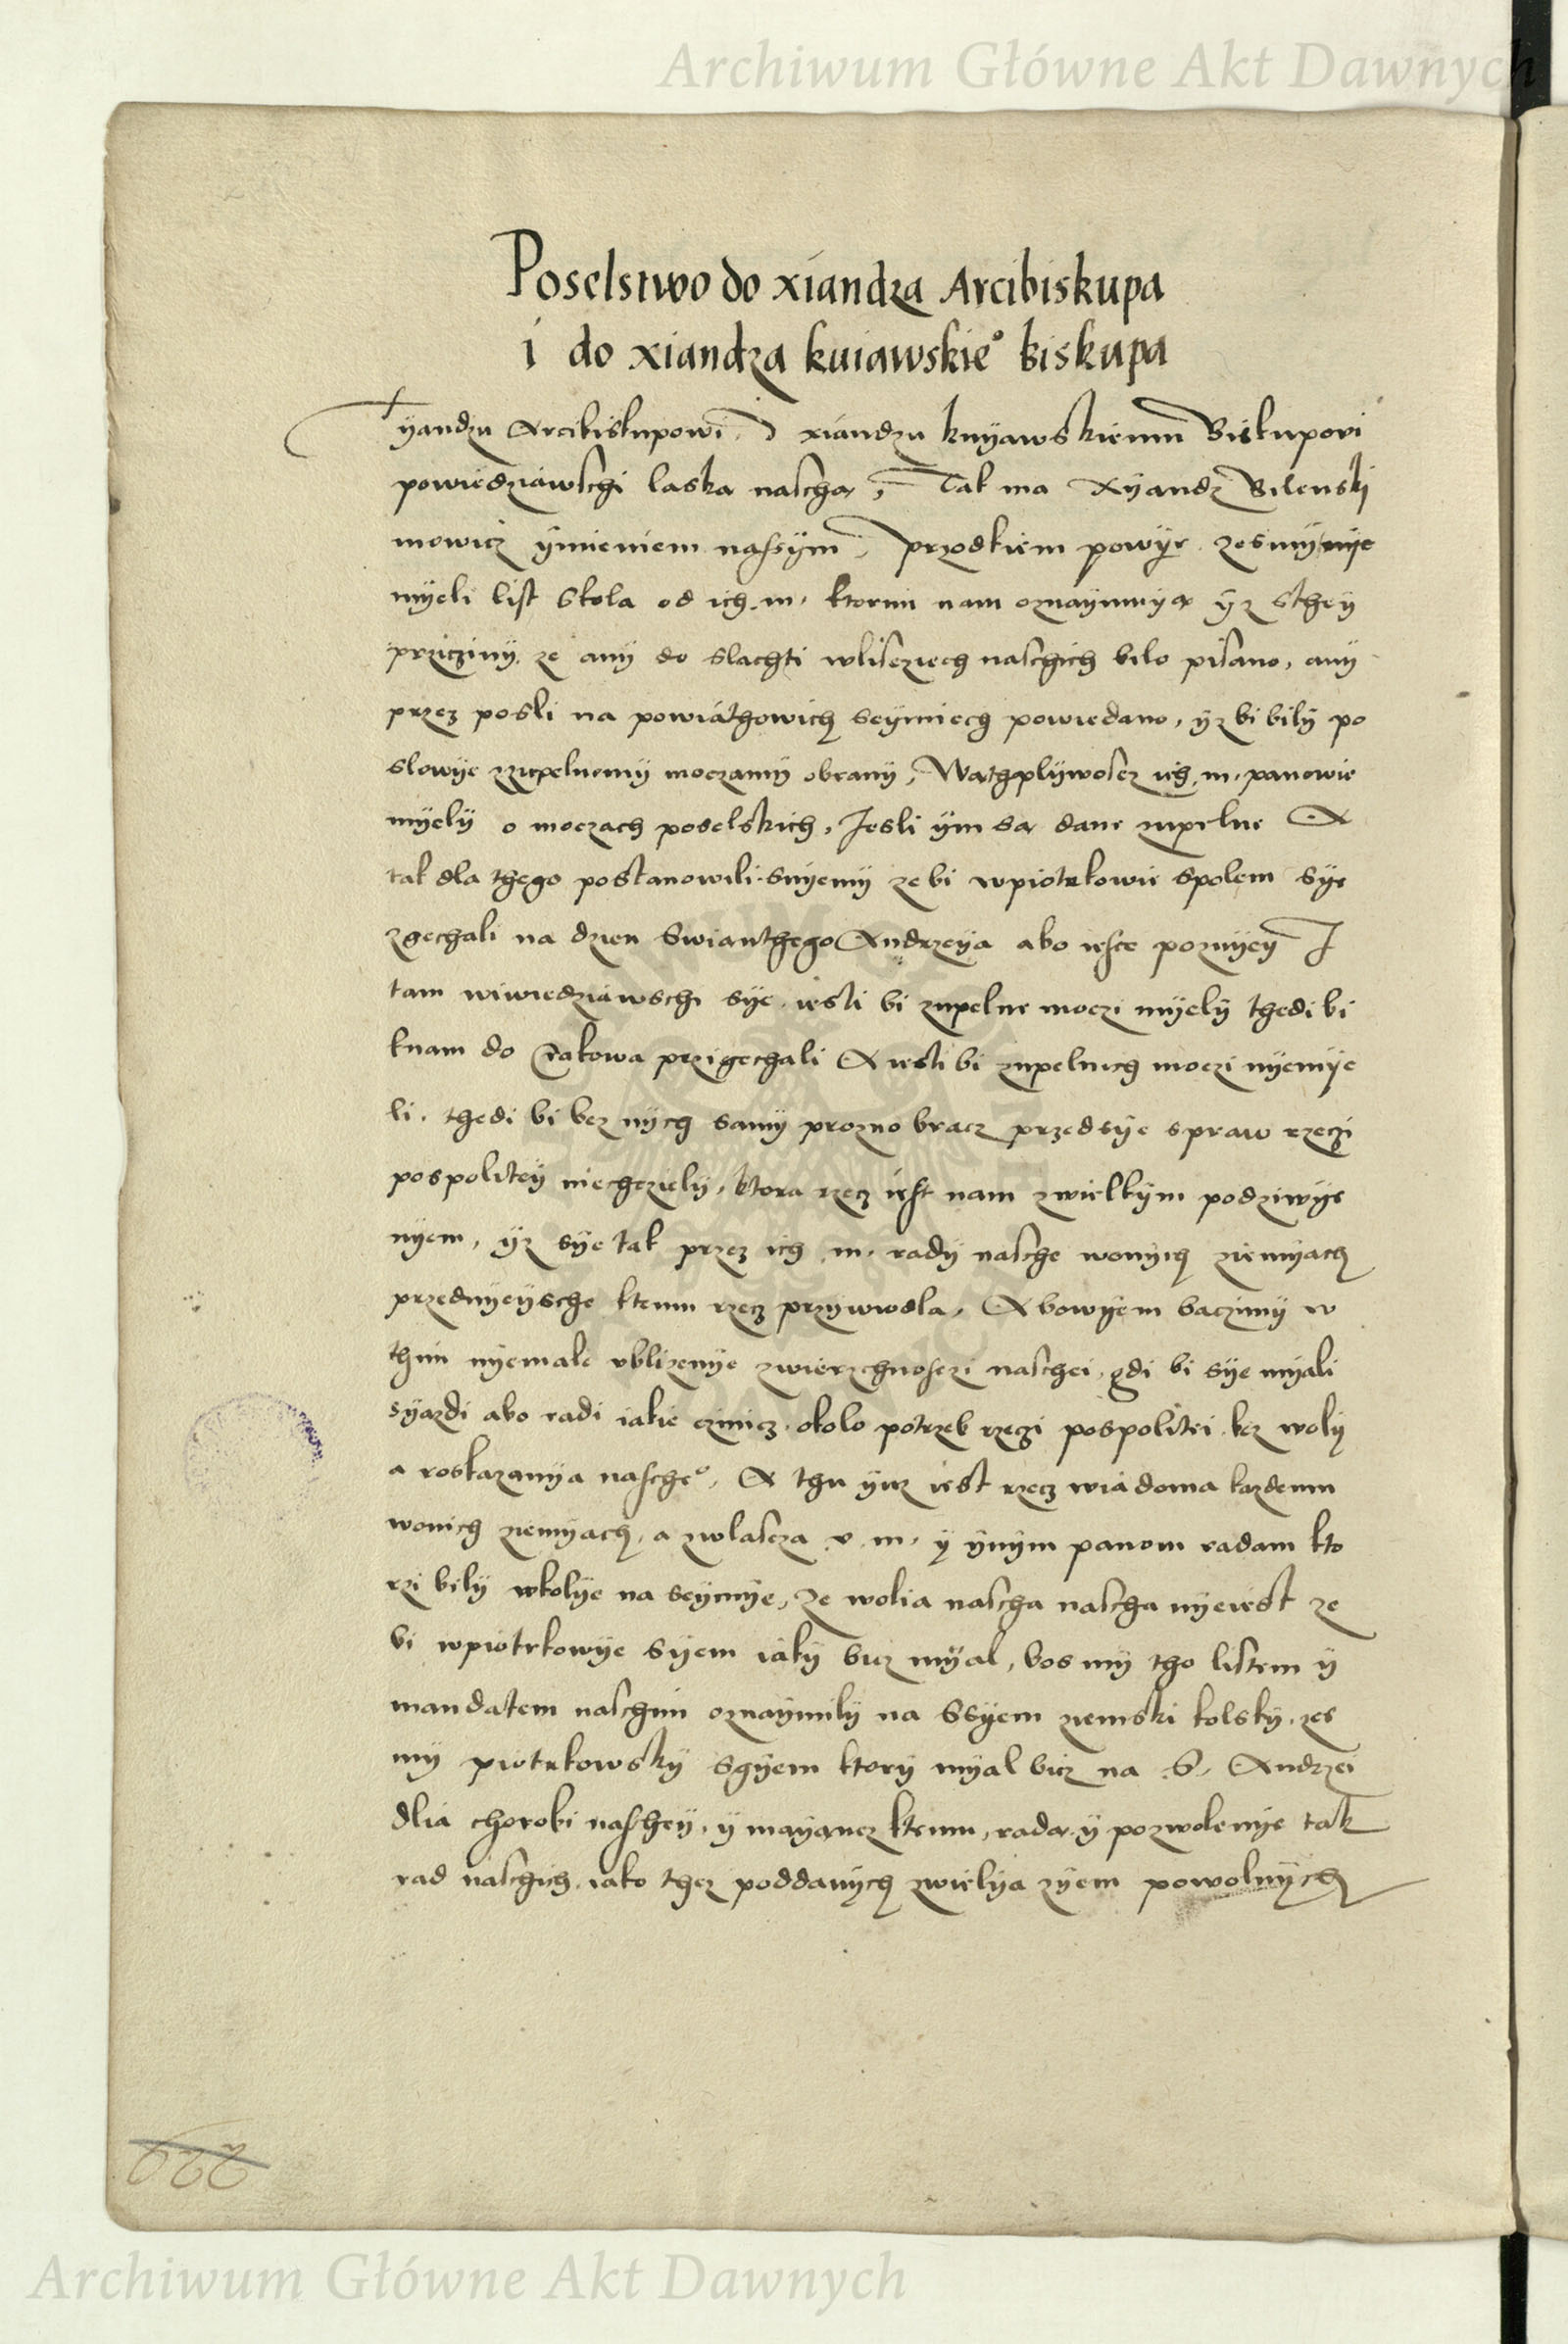 Archiwum Główne Akt Dawnych
Poselstwo do xiandza Arcibiskupa
i do xiandza kuiawskie° biskupa
Xyandzu Arcibiskupowi I xiandzu kuyawskiemu Biskupovi
powiedziawschi laska nascha, Tak ma Xyandz Bilenski
mowicz ymieniem nassym, przodkiem powye zesmy nye
myeli list skola od ich. m. ktorim nam oznaymuya yz sthey
przicziny ze any do slachti wlisciech naschich bilo pisano, any
przez posli na powiathowich seymiech powiedano, yz bi bily po
slowye zzupelnemy moczamy obrany, Wathplywoscz ich. m. panowie
myely o moczach poselskich, Jesli ym sa dane zupelne A
tak dla thego postanowili smyemy ze bi wpiotrkowie spolem sye
zgechali na dzien Swianthego Andrzeya abo iesce pozniyey I
tam wiwiedziawschi sye iesli bi zupelne moczi myely thedi bi
knam do Crakowa przigechali A iesli bi zupelnich moczi nyemye
li. thedi bi bez nych samy prozno bracz przedsye spraw rzeczi
pospolitey niechcziely, ktora rzecz iest nam zwielkym podziwye
nyem, yz sye tak przez ich m. rady nasche wonych ziemyach
przednyeysche ktemu rzecz przywiodla, Abowyem baczimy w
thim nyemale ublizenye zwierzchnosczi naschei, gdi bi sye myali
syazdi abo radi iakie czinicz okolo potrzeb rzeczi pospolitei bez woly
a roskazanya nasche°, A thu yuz iest rzecz wiadoma kazdemu
wonich ziemyach, a zwlascza v. m. y ynym panom radam kto
rzi bily wkolye na seymye, ze wolia nascha nascha nyeiest ze
bi wpiotrkowye syem iaky bicz myal, bos my tho listem y
mandatem naschim oznaymily na Ssyem ziemski kolsky. zes
my piotrkowsky sgyem ktory myal bicz na S. Andrzei
dlia chorobi naschey, y mayancz ktemu, rada y pozwolenye tak
rad naschich, iako thez poddanych zwielya zyem powolnych
222
Archiwum Główne Akt Dawnych